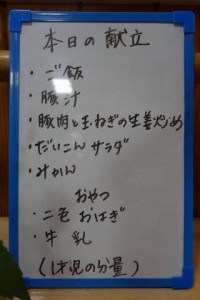 本日の献立
・ご飯
・豚汁
・豚肉と玉ねぎの生姜炒め
・だいこんサラダ
・みかん
おやつ
・二色おはぎ
・牛乳
(1才児の分量)